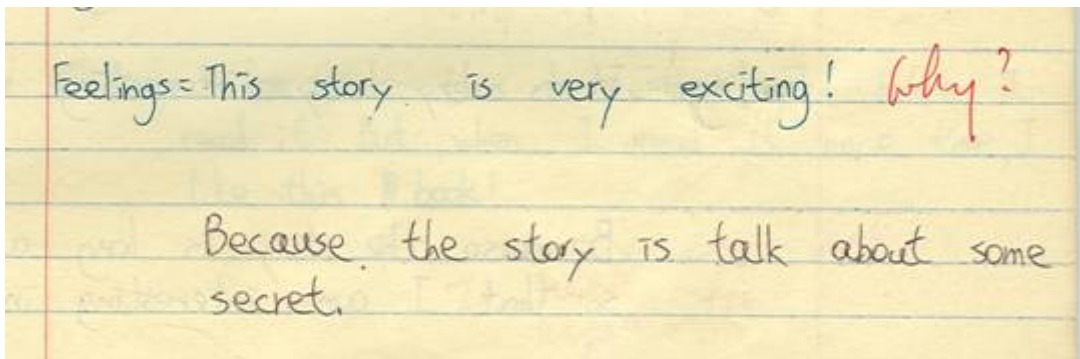 Feelings = This story is very exciting! Why?
Because the story is talk about some
secret.